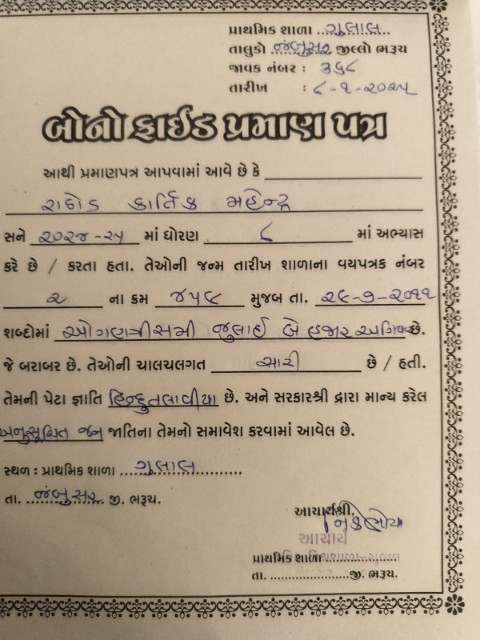 પ્રાથમિક શાળા ..ગુલાલ..
તાલુકો જંબુસર જીલ્લો ભરૂચ
જાવક નંબર : ૩૬૮
તારીખ : ૮-૧-૨૦૨૫
બોનો ફાઈડ પ્રમાણ પત્ર
આથી પ્રમાણપત્ર આપવામાં આવે છે કે
રાઠોડ કાર્તિક મહેન્દ્ર
સને ૨૦૨૪-૨૫ માં ધોરણ ૮ માં અભ્યાસ
કરે છે / કરતા હતા. તેઓની જન્મ તારીખ શાળાના વયપત્રક નંબર
૨ ના ક્રમ ૪૫૯ મુજબ તા. ૨૯-૭-૨૦૧૧
શબ્દોમાં ઓગણત્રીસમી જુલાઈ બે હજાર અગિયાર છે.
જે બરાબર છે. તેઓની ચાલચલગત સારી છે / હતી.
તેમની પેટા જ્ઞાતિ હિન્દુ તલાવીયા છે. અને સરકારશ્રી દ્વારા માન્ય કરેલ
અનુસૂચિત જન જાતિના તેમનો સમાવેશ કરવામાં આવેલ છે.
સ્થળ : પ્રાથમિક શાળા ..ગુલાલ..........
તા. ..જંબુસર.. જી. ભરૂચ.
આચાર્યશ્રી.
આચાર્ય
પ્રાથમિક શાળા
તા. ......................જી. ભરૂચ.